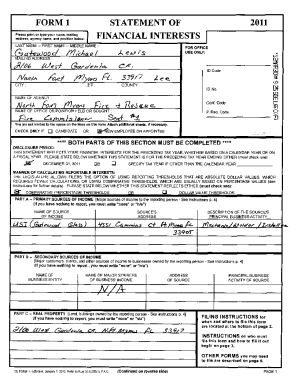 FORM 1 STATEMENT OF 2011
FINANCIAL INTERESTS
Please print or type your name, mailing
address, agency name, and position below:
LAST NAME -- FIRST NAME -- MIDDLE NAME
Gatewood Michael Lewis
MAILING ADDRESS
2106 West Gardenia CR.
North Fort Myers Fl 33917 Lee
CITY ZIP COUNTY
NAME OF AGENCY
North Fort Myers Fire & Rescue
NAME OF OFFICE OR POSITION HELD OR SOUGHT
Fire Commissioner Seat #
You are not limited to the space on the lines on this form. Attach additional sheets, if necessary.
CHECK ONLY IF CANDIDATE OR NEW EMPLOYEE OR APPOINTEE
FOR OFFICE
USE ONLY:
ID Code
ID No.
Conf. Code
P. Req. Code
**** BOTH PARTS OF THIS SECTION MUST BE COMPLETED ****
DISCLOSURE PERIOD:
THIS STATEMENT REFLECTS YOUR FINANCIAL INTERESTS FOR THE PRECEDING TAX YEAR, WHETHER BASED ON A CALENDAR YEAR OR ON
A FISCAL YEAR. PLEASE STATE BELOW WHETHER THIS STATEMENT IS FOR THE PRECEDING TAX YEAR ENDING EITHER (must check one):
DECEMBER 31, 2011 OR SPECIFY TAX YEAR IF OTHER THAN THE CALENDAR YEAR:
MANNER OF CALCULATING REPORTABLE INTERESTS:
THE LEGISLATURE ALLOWS FILERS THE OPTION OF USING REPORTING THRESHOLDS THAT ARE ABSOLUTE DOLLAR VALUES, WHICH
REQUIRES FEWER CALCULATIONS, OR USING COMPARATIVE THRESHOLDS, WHICH ARE USUALLY BASED ON PERCENTAGE VALUES (see
instructions for further details). PLEASE STATE BELOW WHETHER THIS STATEMENT REFLECTS EITHER (must check one):
COMPARATIVE (PERCENTAGE) THRESHOLDS OR DOLLAR VALUE THRESHOLDS
PART A -- PRIMARY SOURCES OF INCOME
(If you have nothing to report, you must write "none" or "n/a")
NAME OF SOURCE OF INCOME
SOURCE'S ADDRESS
DESCRIPTION OF THE SOURCE'S PRINCIPAL BUSINESS ACTIVITY
33905
PART B -- SECONDARY SOURCES OF INCOME
(If you have nothing to report, you must write "none" or "n/a")
NAME OF BUSINESS ENTITY
NAME OF MAJOR SOURCES OF BUSINESS' INCOME
ADDRESS OF SOURCE
PRINCIPAL BUSINESS ACTIVITY OF SOURCE
N/A
PART C -- REAL PROPERTY
(If you have nothing to report, you must write "none" or "n/a")
2106 West Gardenia CR N. Ft. Myers FL 33917
FILING INSTRUCTIONS for
when and where to file this form are
located at the bottom of page 2.
INSTRUCTIONS on who must file
this form and how to fill it out
begin on page 3.
OTHER FORMS you may need
to file are described on page 6.
(Continued on reverse side)
PAGE 1